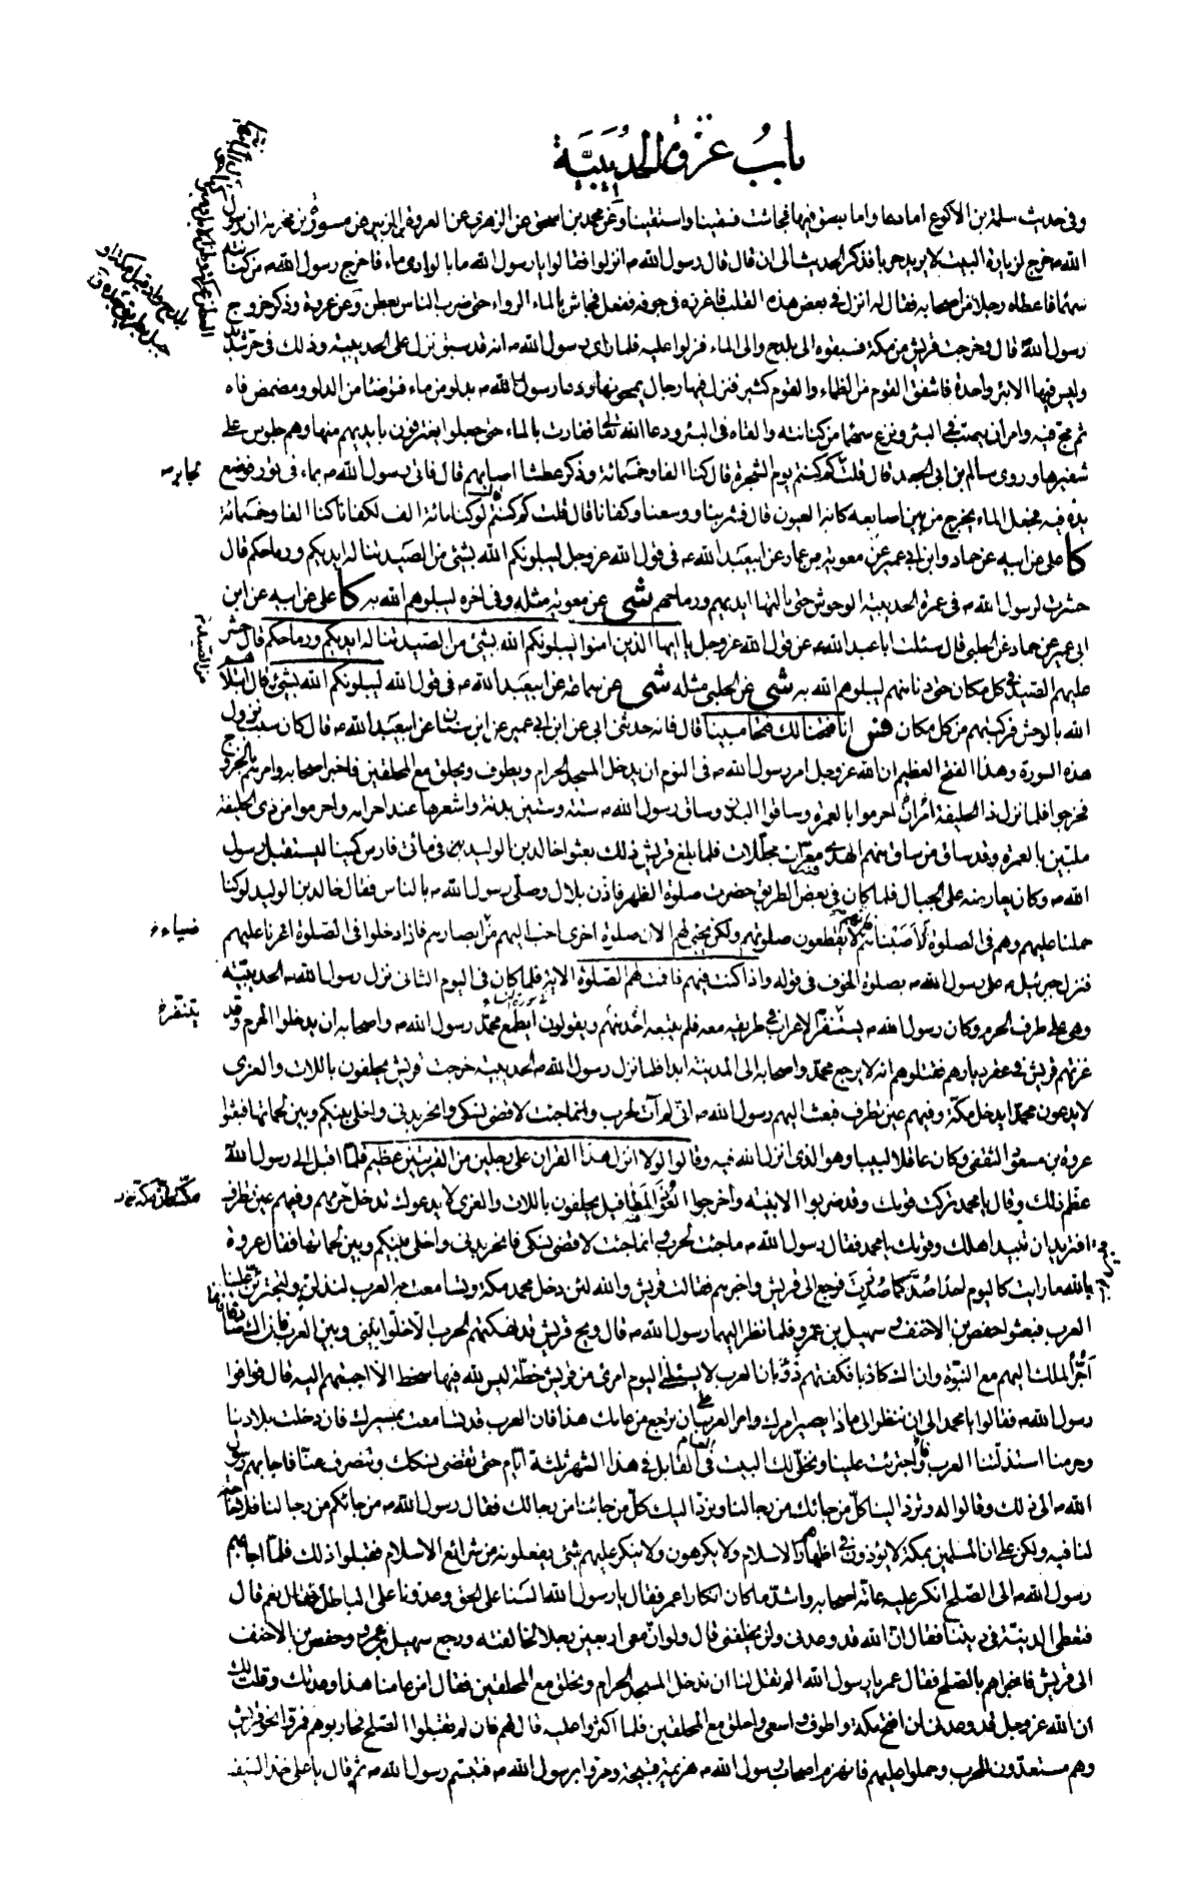 باب غزوة الحديبية
وفي حديث سلمة بن الاكوع اما دعا واما بصق فيها فجاشت فسقينا واستقينا وعن محمد بن اسحق عن الزهري عن العروة بن الزبير عن مسور بن مخرمة ان رسول
الله ص خرج لزيارة البيت لا يريد حربا فذكر الحديث الى ان قال قال رسول الله ص انزلوا فقالوا يا رسول الله ما بالوادي ماء فاخرج رسول الله ص من كنانته
سهما فاعطاه رجلا من اصحابه فقال له انزل في بعض هذه القلب فاغرزه في جوفه ففعل فجاش بالماء الرواء حتى ضرب الناس بعطن وعن عروة وذكر خروج
رسول الله قال وخرجت قريش من مكة فسبقوه الى بلدح والى الماء فنزلوا عليه فلما راى رسول الله ص انه قد سبق نزل على الحديبية وذلك في حر شديد
وليس فيها الا بئر واحدة فاشفق القوم من الظماء والقوم كثير فنزل فيها رجال يمحونها ودعا رسول الله ص بدلو من ماء فتوضا من الدلو ومضمض فاه
ثم مج فيه وامر ان يصب في البئر ونزع سهما من كنانته والقاه في البئر ودعا الله تعالى ففارت بالماء حتى جعلوا يغترفون بايديهم منها وهم جلوس على
شفيرها وروى سالم بن ابي الجعد قال قلت كم كنتم يوم الشجرة قال كنا الفا وخمسمائة وذكر عطشا اصابهم قال فاتي رسول الله ص بماء في تور فوضع
يده فيه فجعل الماء يخرج من بين اصابعه كانه العيون قال فشربنا ووسعنا وكفانا قال قلت كم كنتم قال لو كنا مائة الف لكفانا كنا الفا وخمسمائة
كا علي عن ابيه عن حماد وابن ابي عمير عن معوية بن عمار عن ابيعبد الله ع في قول الله عز وجل ليبلونكم الله بشئ من الصيد تناله ايديكم ورماحكم قال
حشرت لرسول الله ص في عمرة الحديبية الوحوش حتى نالتها ايديهم ورماحهم شى عن معوية مثله وفي اخره ليبلوهم الله به كا علي عن ابيه عن ابن
ابي عمير عن حماد عن الحلبي قال سئلت ابا عبد الله ع عن قول الله عز وجل يا ايها الذين امنوا ليبلونكم الله بشئ من الصيد تناله ايديكم ورماحكم قال حشر
عليهم الصيد في كل مكان حتى دنا منهم ليبلوهم الله به شى عن الحلبي مثله شى عن سماعة عن ابيعبد الله ع في قول الله ليبلونكم الله بشئ قال ابتلاهم
الله بالوحش فركبتهم من كل مكان فس انا فتحنا لك فتحا مبينا قال فانه حدثني ابي عن ابن ابي عمير عن ابن سنان عن ابيعبد الله ع قال كان سبب نزول
هذه السورة وهذا الفتح العظيم ان الله عز وجل امر رسول الله ص في النوم ان يدخل المسجد الحرام ويطوف ويحلق مع المحلقين فاخبر اصحابه وامرهم بالخروج
فخرجوا فلما نزل ذا الحليفة امرانْ احرموا بالعمرة وساقوا البدن وساق رسول الله ص ستة وستين بدنة واشعرها عند احرامه واحرموا من ذي الحليفة
ملبين بالعمرة وقد ساق من ساق منهم الهدى معرات مجللات فلما بلغ قريش ذلك بعثوا خالد بن الوليد في مائتى فارس كمينا ليستقبل رسول
الله ص وكان يعارضه على الجبال فلما كان في بعض الطريق حضرت صلوة الظهر فاذن بلال وصلى رسول الله ص بالناس فقال خالد بن الوليد لو كنا
حملنا عليهم وهم في الصلوة لاصبناهم فانهم لا يقطعون صلوتهم ولكن تجئ لهم الان صلوة اخرى احب اليهم من ابصارهم فاذا دخلوا في الصلوة اغرنا عليهم
فنزل جبرئيل ع على رسول الله ص بصلوة الخوف في قوله واذا كنت فيهم فاقمت لهم الصلوة الاية فلما كان في اليوم الثاني نزل رسول الله ص الحديبية
وهي على طرف الحرم وكان رسول الله ص يستنفر الاعراب في طريقه معه فلم يتبعه احد منهم ويقولون ايطمع محمد رسول الله ص واصحابه ان يدخلوا الحرم وقد
غزتهم قريش في عقر ديارهم فقتلوهم انه لا يرجع محمد واصحابه الى المدينة ابدا فلما نزل رسول الله ص الحديبية خرجت قريش يحلفون باللات والعزى
لا يدعون محمدا يدخل مكة وفيهم عين تطرف فبعث اليهم رسول الله ص اني لم آت لحرب وانما جئت لاقضي نسكي وانحر بدني واخلي بينكم وبين لحمانها فبعثوا
عروة بن مسعود الثقفي وكان عاقلا لبيبا وهو الذي انزل الله فيه وقالوا لولا انزل هذا القران على رجل من القريتين عظيم فلما اقبل الى رسول الله
عظم ذلك وقال يا محمد تركت قومك وقد ضربوا الابنية واخرجوا العوذ المطافيل يحلفون باللات والعزى لا يدعوك تدخل حرمهم وفيهم عين تطرف
افتريد ان تبيد اهلك وقومك يا محمد فقال رسول الله ص ما جئت لحرب وانما جئت لاقضي نسكي فانحر بدني واخلي بينكم وبين لحمانها فقال عروة
بالله ما رايت كاليوم احدا صد كما صددت فرجع الى قريش واخبرهم فقالت قريش والله لئن دخل محمد مكة وتسامعت به العرب لنذلن ولتجترئن علينا
العرب فبعثوا حفص بن الاحنف وسهيل بن عمرو فلما نظر اليهما رسول الله ص قال ويح قريش قد نهكتهم الحرب الا خلوا بيني وبين العرب فان اك صادقا فانما
اجر الملك اليهم مع النبوة وان اك كاذبا فكفتهم ذؤبان العرب لا يسئلني اليوم امرئ من قريش خطة ليس لله فيها سخط الا اجبتهم اليه قال فوافوا
رسول الله ص فقالوا يا محمد الى ان ننظر الى ماذا يصير امرك وامر العرب على ان ترجع من عامك هذا فان العرب قد تسامعت بمسيرك فان دخلت بلادنا
وحرمنا استذلتنا العرب واجترئت علينا ونخلي لك البيت في العام القابل في هذا الشهر ثلثة ايام حتى تقضي نسكك وتنصرف عنا فاجابهم رسول
الله ص الى ذلك وقالوا له وترد الينا كل من جائك من رجالنا ونرد اليك كل من جائنا من رجالك فقال رسول الله ص من جائكم من رجالنا فلا حاجة
لنا فيه ولكن على ان المسلمين بمكة لا يؤذون في اظهارهم الاسلام ولا يكرهون ولا ينكر عليهم شئ يفعلونه من شرائع الاسلام فقبلوا ذلك فلما اجابهم
رسول الله ص الى الصلح انكر عليه عامة اصحابه واشد ما كان انكارا عمر فقال يا رسول الله السنا على الحق وعدونا على الباطل فقال نعم قال
فنعطي الدنية في ديننا فقال ان الله قد وعدني ولن يخلفني قال ولو ان معي اربعين رجلا لخالفته ورجع سهيل بن عمرو وحفص بن الاحنف
الى قريش فاخبراهم بالصلح فقال عمر يا رسول الله الم تقل لنا ان ندخل المسجد الحرام ونحلق مع المحلقين فقال امن عامنا هذا وعدتك وقلت لك
ان الله عز وجل قد وعدني ان افتح مكة واطوف واسعى واحلق مع المحلقين فلما اكثروا عليه قال لهم فان لم تقبلوا الصلح فحاربوهم فمروا نحو قريش
وهم مستعدون للحرب وحملوا عليهم فانهزم اصحاب رسول الله ص هزيمة قبيحة ومروا برسول الله ص فتبسم رسول الله ص ثم قال يا علي خذ السيف
لجابر ص
من الصيد
ضياء
يتنفر